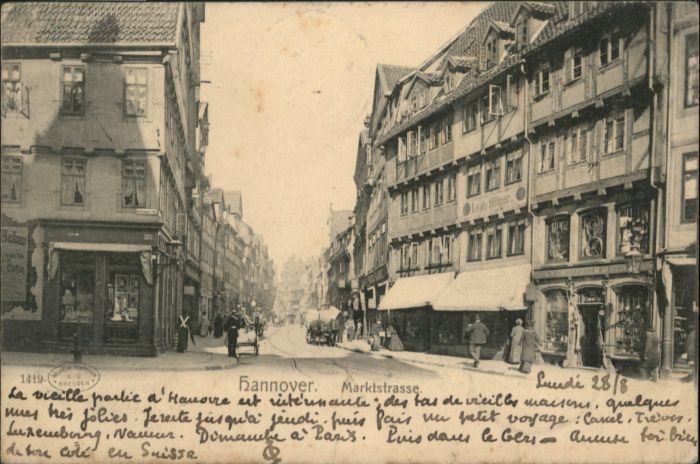 1419
DRESDEN
Hannover. Marktstrasse.
Lundi 28/8
La vieille partie d'Hanovre est intéressante ; des tas de vieilles maisons, quelques
unes très jolies. Je reste jusqu'à jeudi, puis fais un petit voyage : Cassel, Trèves,
Luxembourg, Namur. Dimanche à Paris. Puis dans le Gers — Amuse toi bien
de ton coté en Suisse